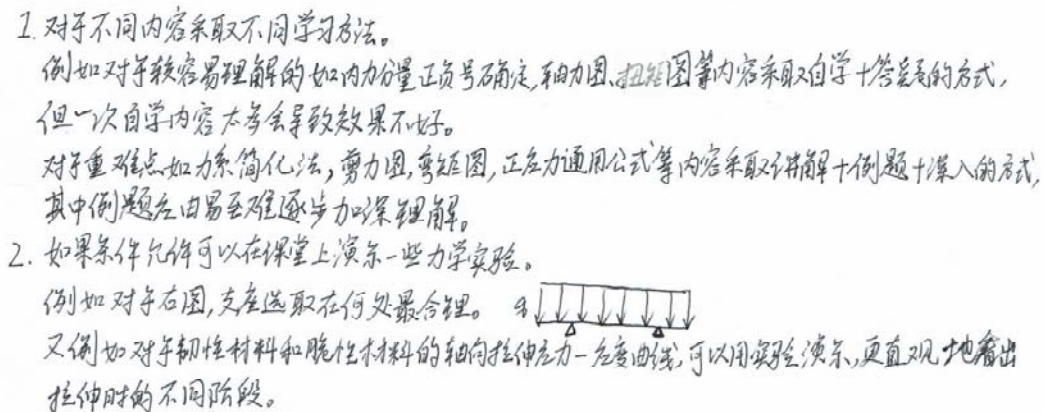 1. 对于不同内容采取不同学习方法。
例如对于较容易理解的如内力分量正负号确定,轴力图、扭矩图等内容采取自学+答疑的方式,
但一次自学内容太多会导致效果不好。
对于重难点如力系简化法,剪力图,弯矩图,正应力通用公式等内容采取讲解+例题+深入的方式,
其中例题应由易至难逐步加深理解。
2. 如果条件允许可以在课堂上演示一些力学实验。
例如对于右图,支座选取在何处最合理。 q
又例如对于韧性材料和脆性材料的轴向拉伸应力一应变曲线,可以用实验演示,更直观地看出
拉伸时的不同阶段。